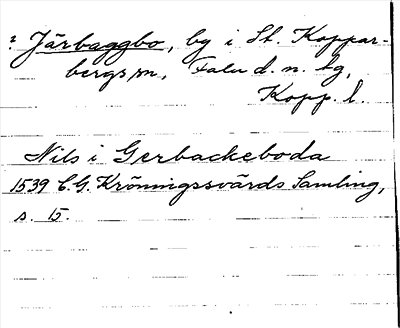 ? Järbaggbo, by i St. Koppar-
bergs sn, Falu d. n. tg,
Kopp. l.
Nils i Gerbackeboda
1539 C. G. Kröningssvärds Samling,
s. 15.